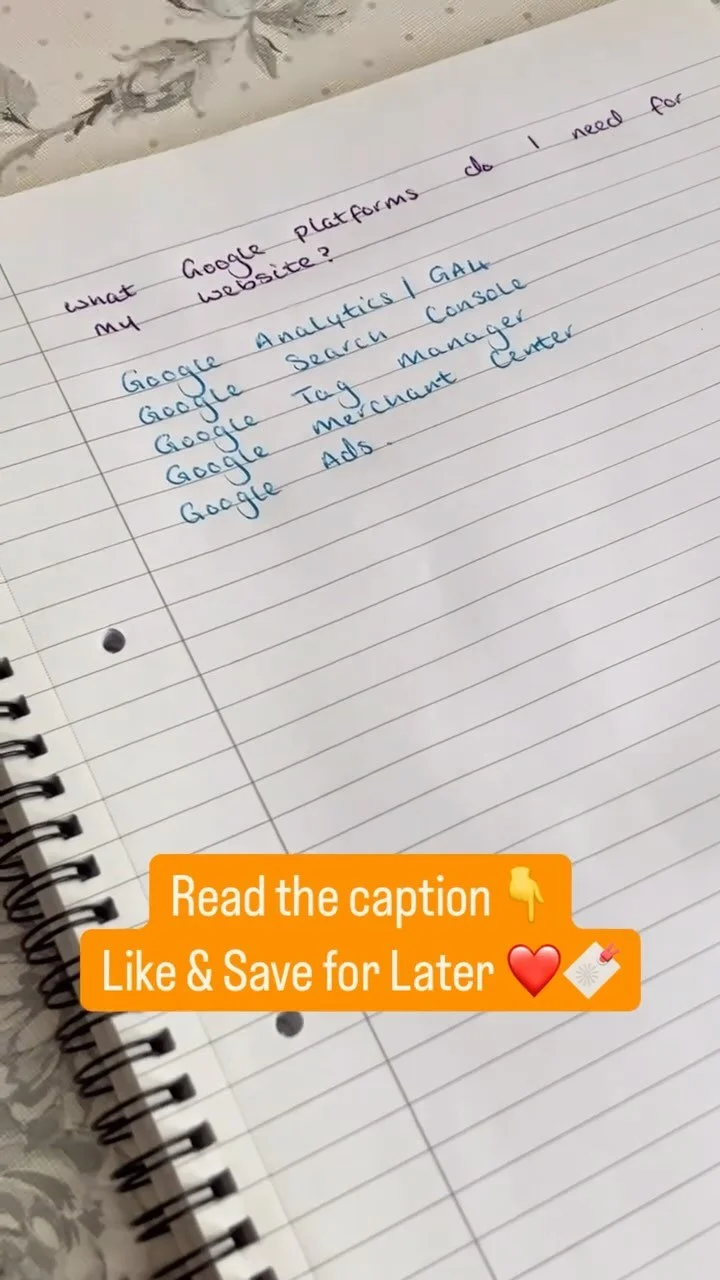 what Google platforms do I need for
my website?
Google Analytics | GA4
Google Search Console
Google Tag manager
Google merchant Center
Google Ads.
Read the caption 👇
Like & Save for Later ❤️🔖